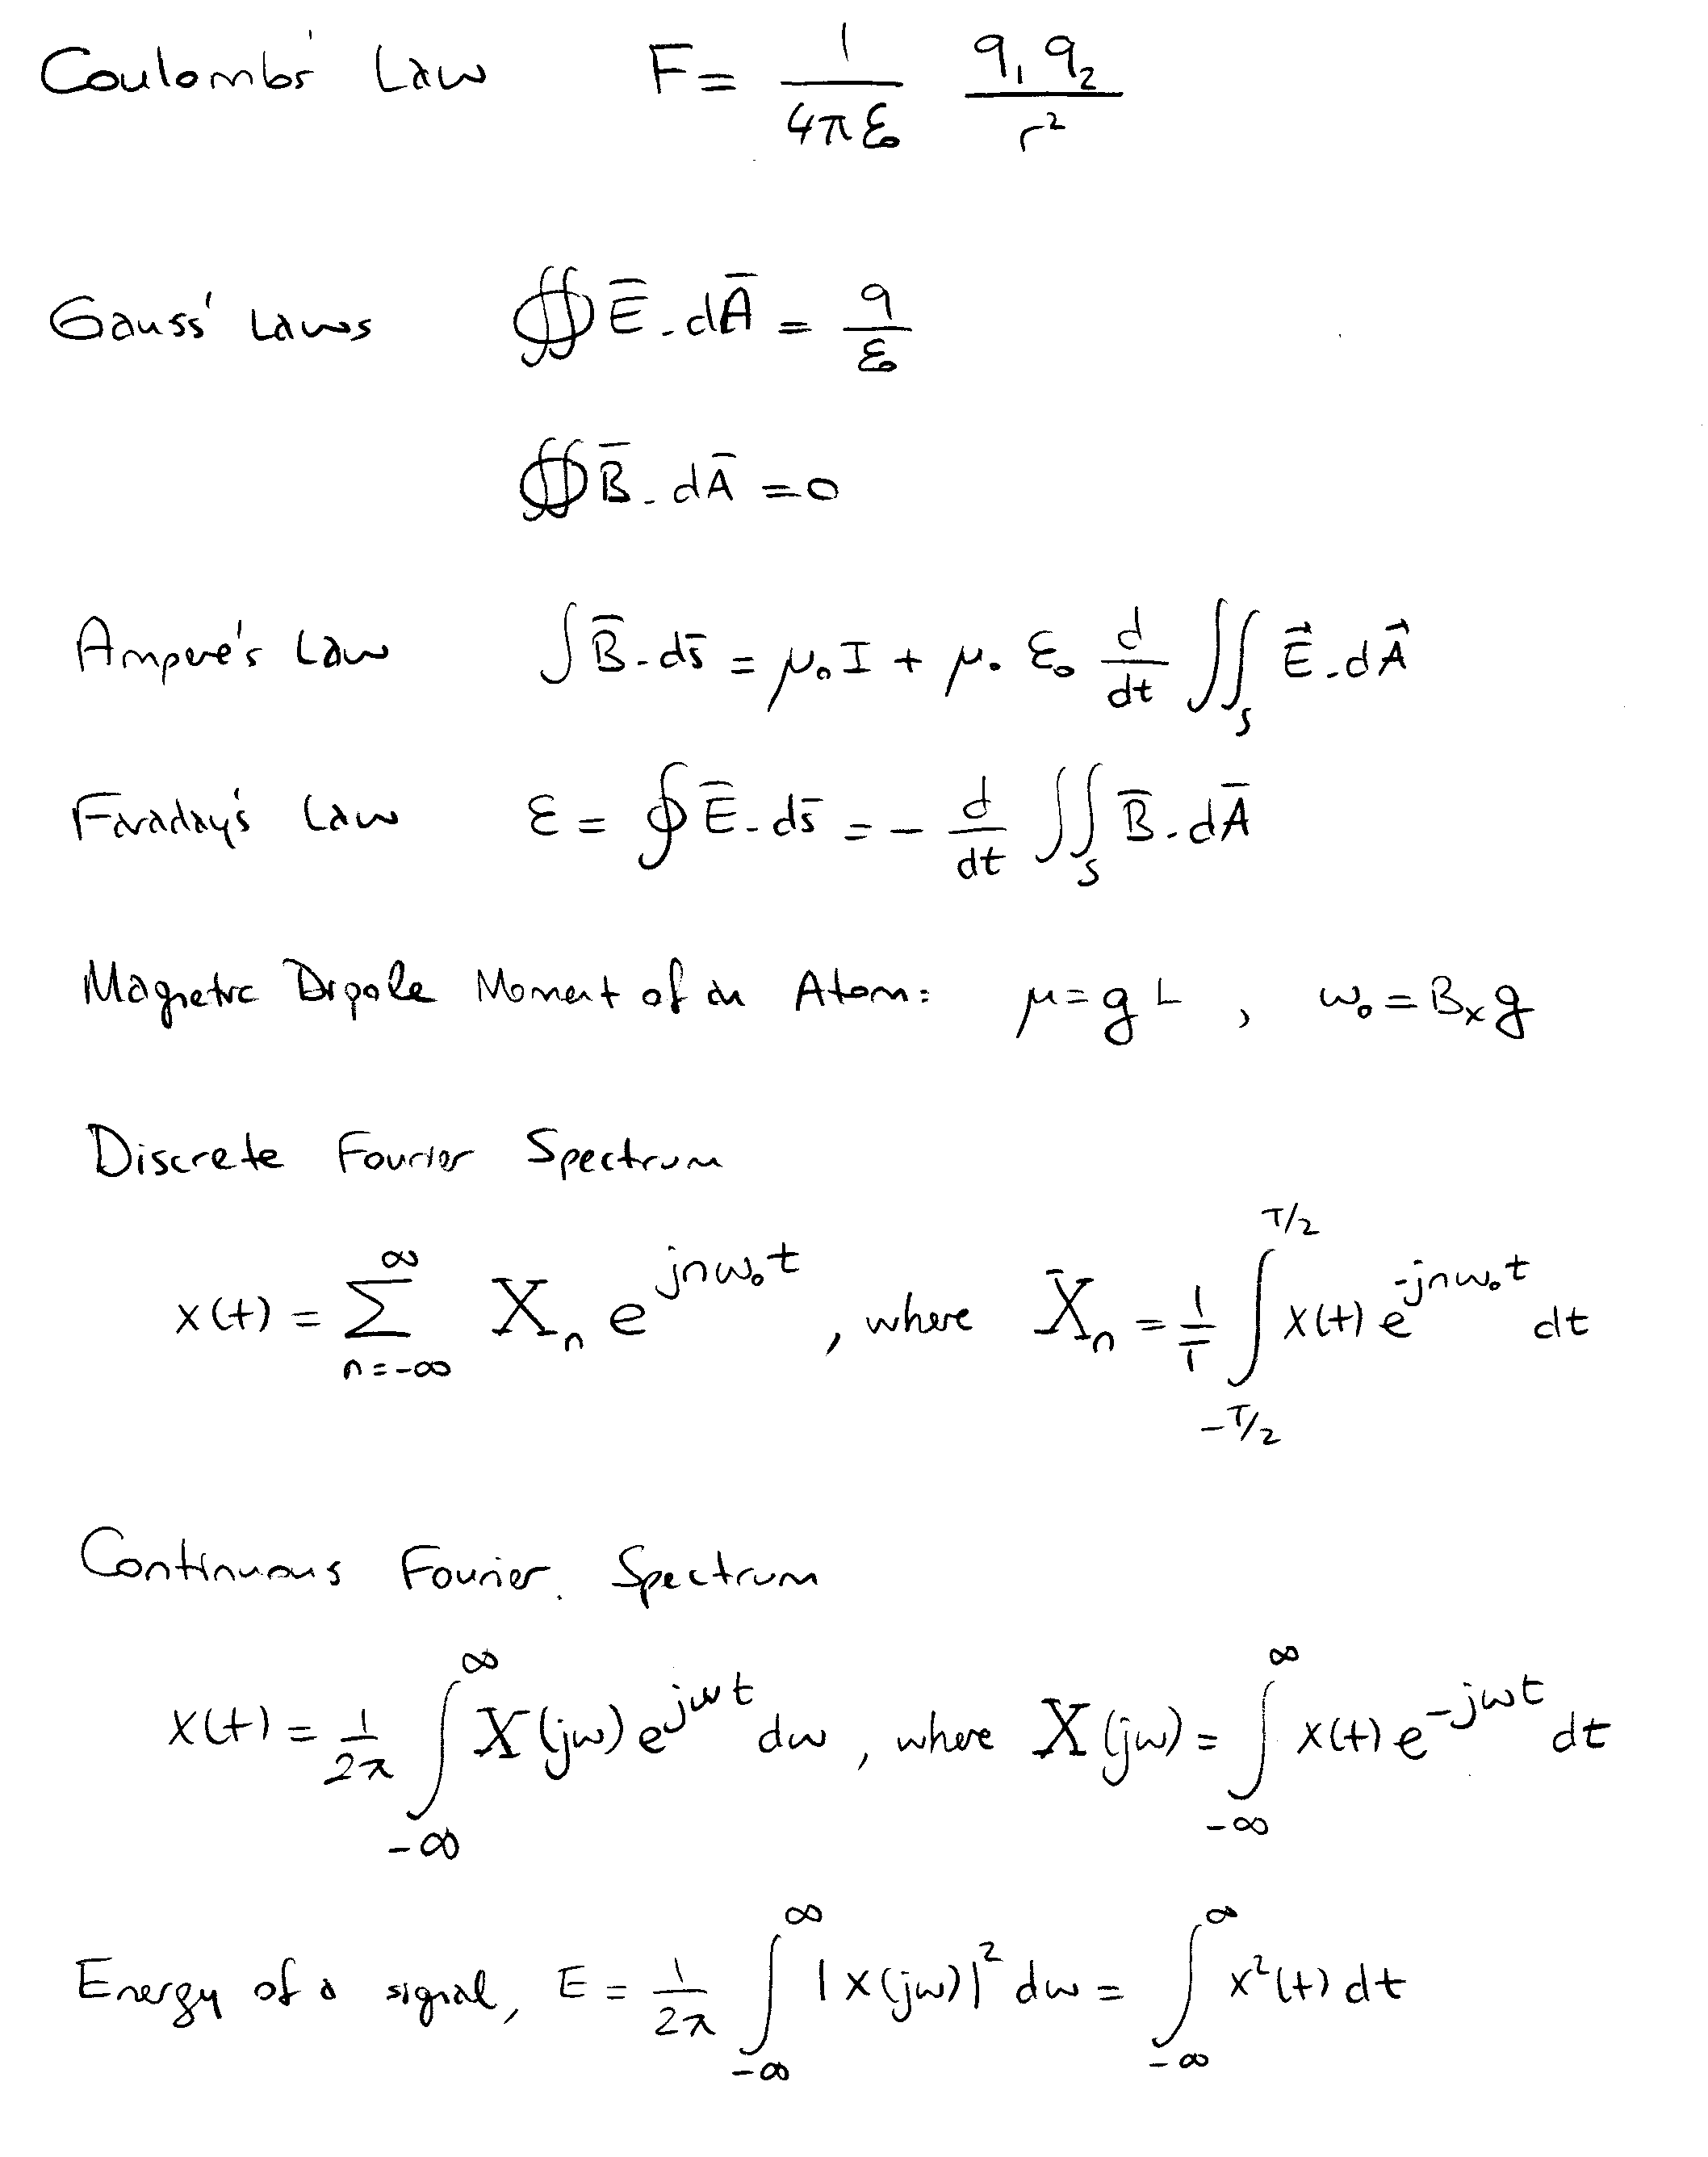 Coulombs' Law F = 1/(4πε₀) q₁q₂/r²
Gauss' Laws ∯ E̅ . dA̅ = q/ε₀
∯ B̅ . dA̅ = 0
Ampere's Law ∫ B̅ . ds̅ = μ₀I + μ₀ ε₀ d/dt ∬_S E⃗ . dA⃗
Faraday's Law ε = ∮ E̅ . ds̅ = - d/dt ∬_S B̅ . dA̅
Magnetic Dipole Moment of an Atom: μ = g L , ω₀ = Bₓg
Discrete Fourier Spectrum
x(t) = ∑_{n=-∞}^{∞} Xₙ e^{jnω₀t} , where Xₙ = 1/T ∫_{-T/2}^{T/2} x(t) e^{-jnω₀t} dt
Continuous Fourier Spectrum
x(t) = 1/2π ∫_{-∞}^{∞} X(jω) e^{jωt} dω , where X(jω) = ∫_{-∞}^{∞} x(t) e^{-jωt} dt
Energy of a signal, E = 1/2π ∫_{-∞}^{∞} |X(jω)|² dω = ∫_{-∞}^{∞} x²(t) dt